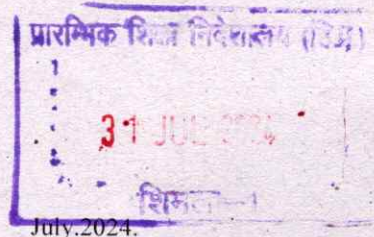 प्रारम्भिक शिक्षा निदेशालय (हि.प्र.)
31 JUL 2024
शिमला-1
July.2024.